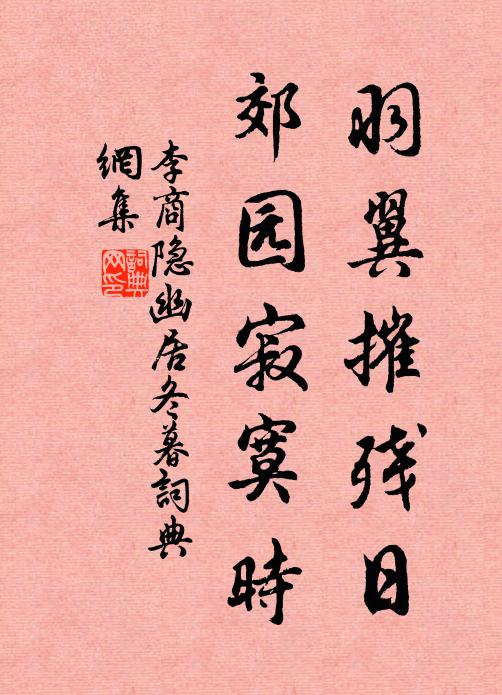 羽翼摧残日
郊园寂寞時
李商隐幽居冬暮詞典
網集
詞典
网印